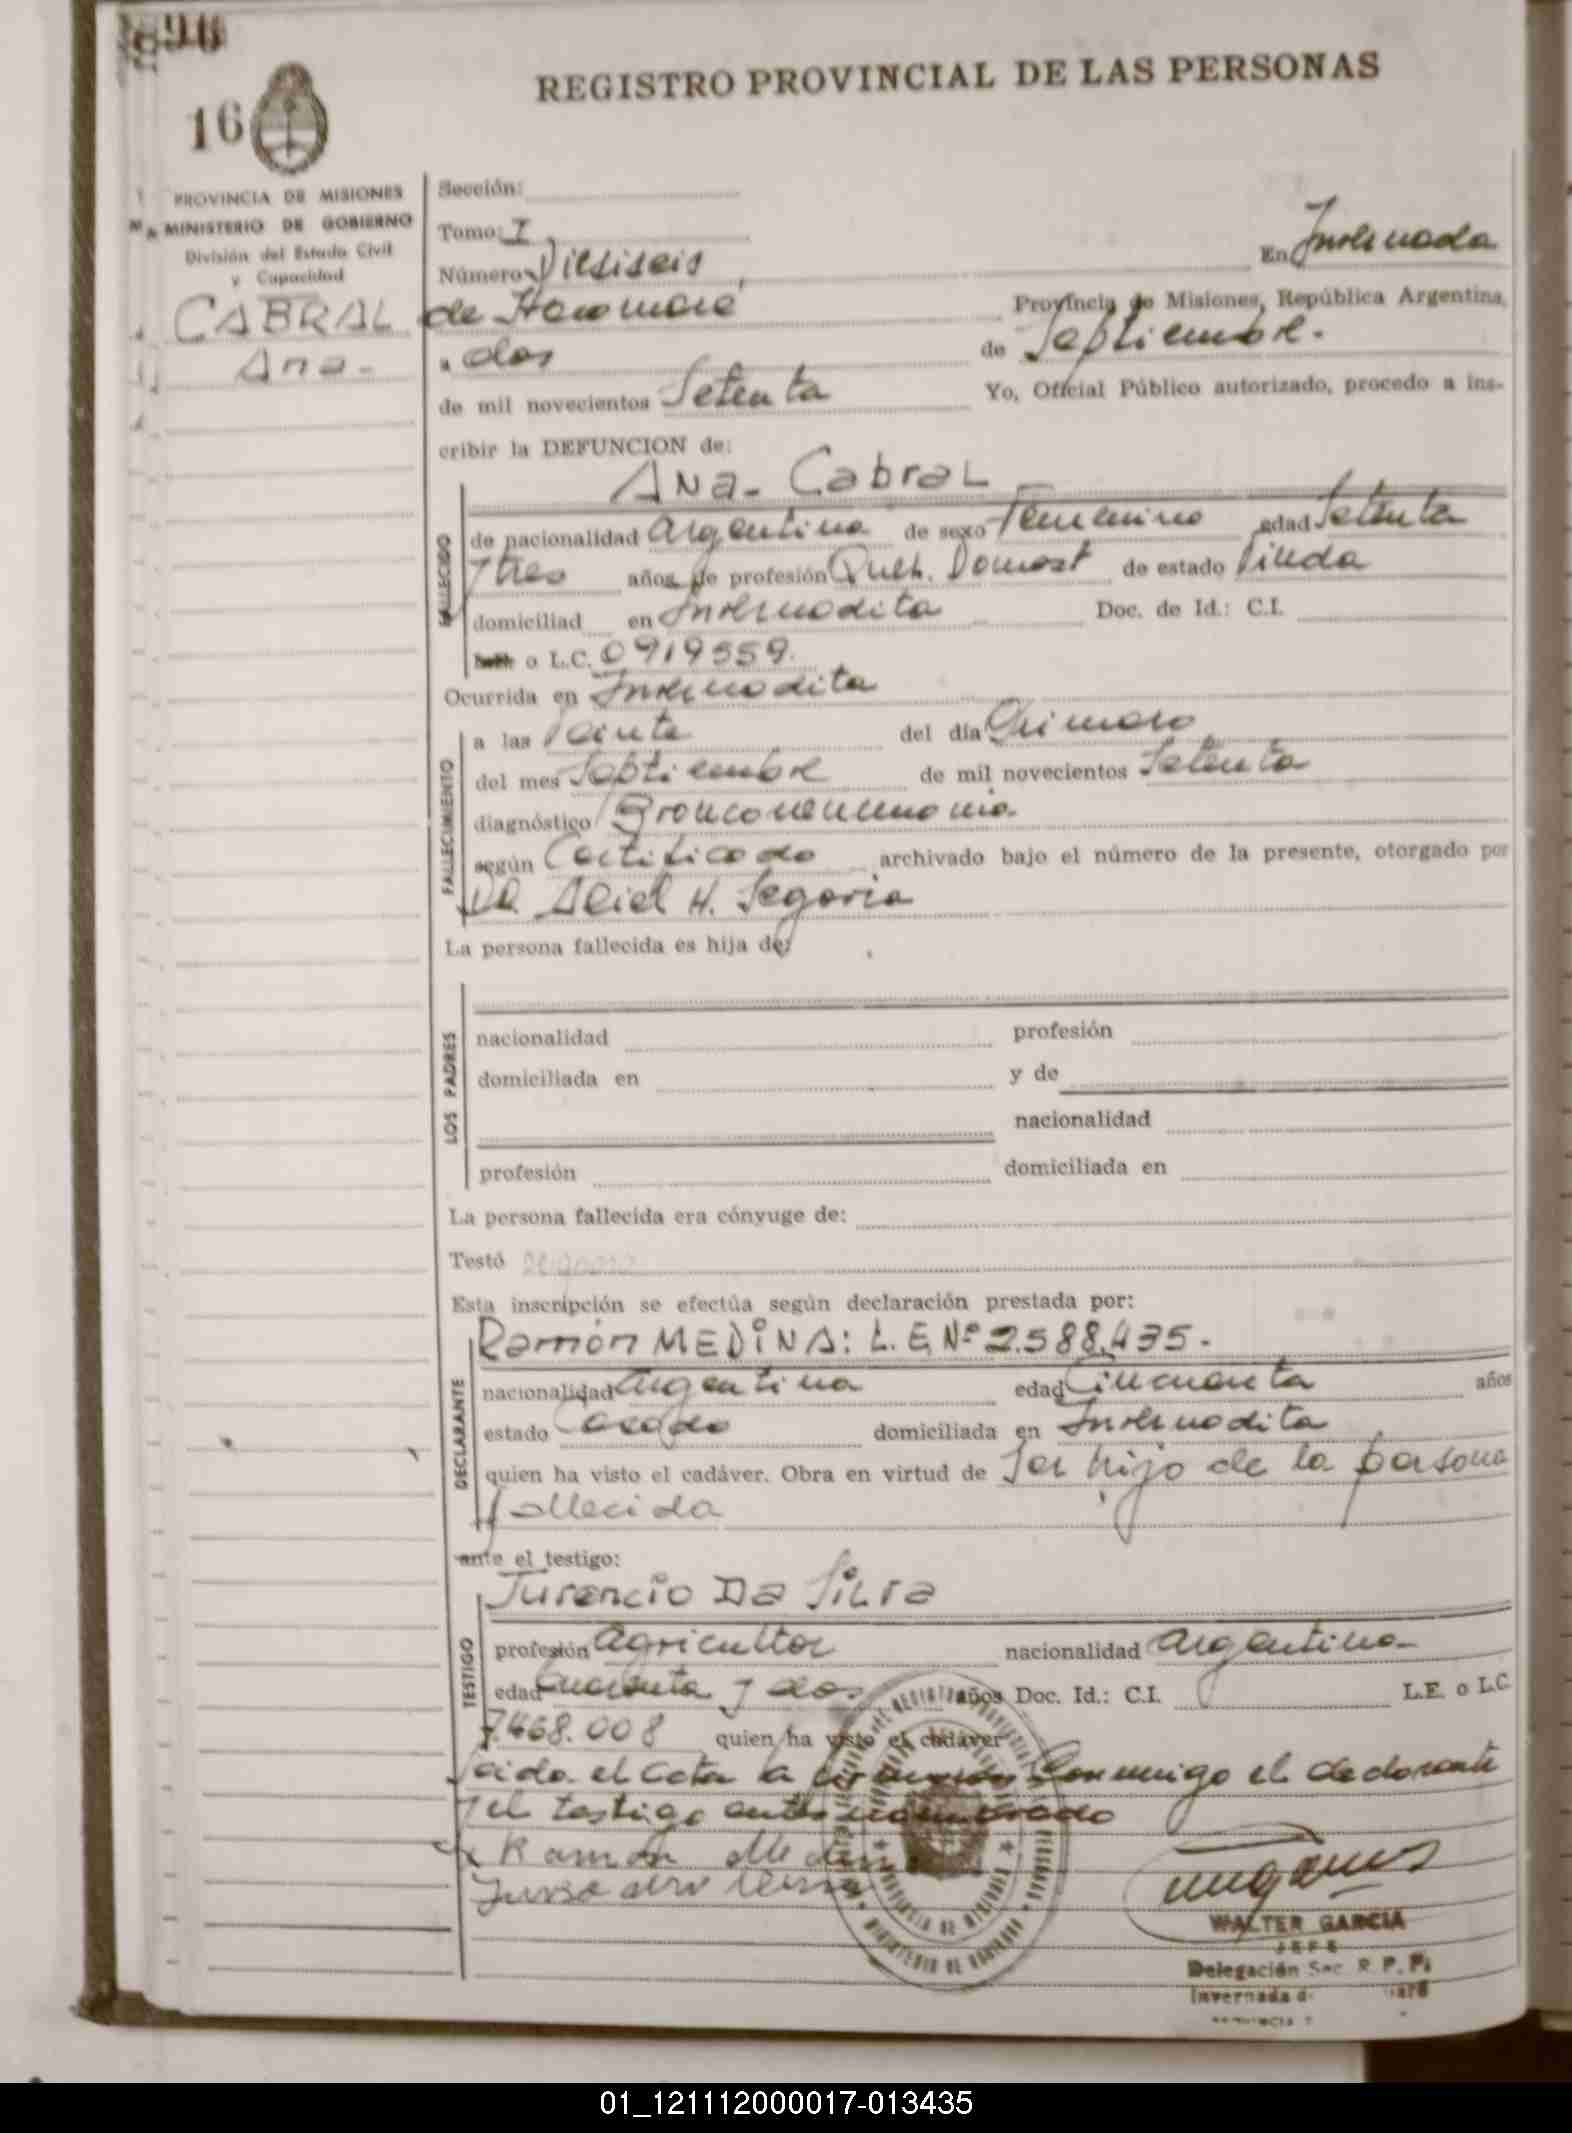 896
16
REGISTRO PROVINCIAL DE LAS PERSONAS
PROVINCIA DE MISIONES
MINISTERIO DE GOBIERNO
División del Estado Civil
y Capacidad
CABRAL
Ana.
Sección:
Tomo: I
Número Diesiseis, En Invernada
de Itacuaré Provincia de Misiones, República Argentina,
a dos de Septiembre.
de mil novecientos Setenta Yo, Oficial Público autorizado, procedo a ins-
cribir la DEFUNCION de:
Ana- Cabral
FALLECIDO
de nacionalidad Argentina de sexo Femenino edad Setenta
y tres años de profesión Queh. Domest de estado Viuda
domiciliad en Invernadita Doc. de Id.: C.I.
o L.C. 0919559.
Ocurrida en Invernadita
FALLECIMIENTO
a las Veinte del día Primero
del mes Septiembre de mil novecientos Setenta
diagnóstico Bronconeumonia.
según Certificado archivado bajo el número de la presente, otorgado por
Dr. Ariel H. Segovia
La persona fallecida es hija de:
LOS PADRES
nacionalidad profesión
domiciliada en y de
nacionalidad
profesión domiciliada en
La persona fallecida era cónyuge de:
Testó
Esta inscripción se efectúa según declaración prestada por:
DECLARANTE
Ramón MEDINA: L.E Nº 2.588.435.-
nacionalidad Argentina edad Cincuenta años
estado Casado domiciliada en Invernadita
quien ha visto el cadáver. Obra en virtud de Ser hijo de la persona
fallecida
ante el testigo:
TESTIGO
Juvencio Da Silva
profesión Agricultor nacionalidad Argentino-
edad Cuarenta y dos años Doc. Id.: C.I. L.E. o L.C.
7.468.008 quien ha visto el cadáver
Leida el Acta la Conmigo el declarante
y el testigo antes nombrado
Ramón Medina
WALTER GARCIA
JEFE
Delegación Sec. R. P. P.
Invernada d
01_121112000017-013435